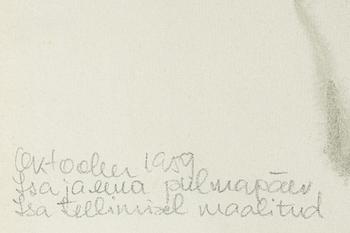 Oktoober 1959
Isa ja ema pulmapäev
Isa tellimisel maalitud